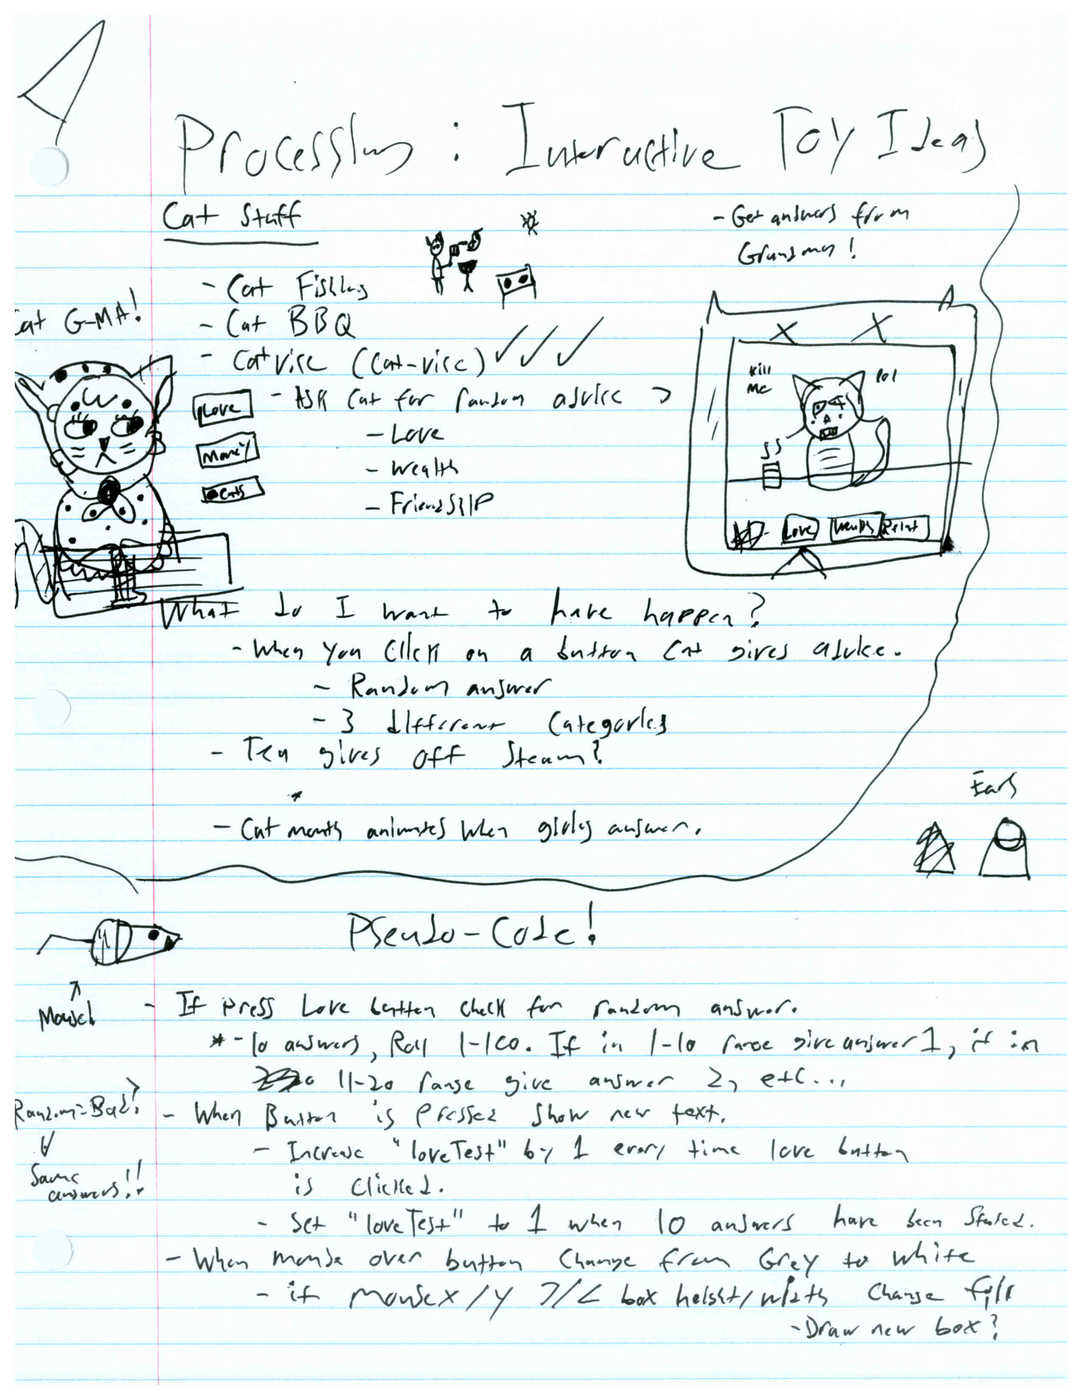 Processing: Interactive Toy Ideas
Cat Stuff
- Get answers from
Grandma!
- Cat Fishing
Cat G-MA!
- Cat BBQ
- Catvise (Cat-vise) ✓✓✓
- Ask Cat for random advice >
- Love
- Wealth
- Friendship
Love
Money
Cats
X X
Kill
Me
lol
SS
Love
Wealth
What do I want to have happen?
- When you click on a button Cat gives advice.
- Random answer
- 3 different categories
- Tea gives off Steam?
*
- Cat mouth animates when giving answer.
Ears
Pseudo-Code!
Mouse!
- If press Love button check for random answer.
* - 10 answers, Roll 1-100. If in 1-10 range give answer 1, if in
11-20 range give answer 2, etc...
Random=Bad?
- When Button is pressed show new text.
Same
answers!!
- Increase "loveTest" by 1 every time love button
is clicked.
- Set "loveTest" to 1 when 10 answers have been stated.
- When mouse over button change from Grey to white
- if mouse x/y >/< box height/width change fill
- Draw new box?